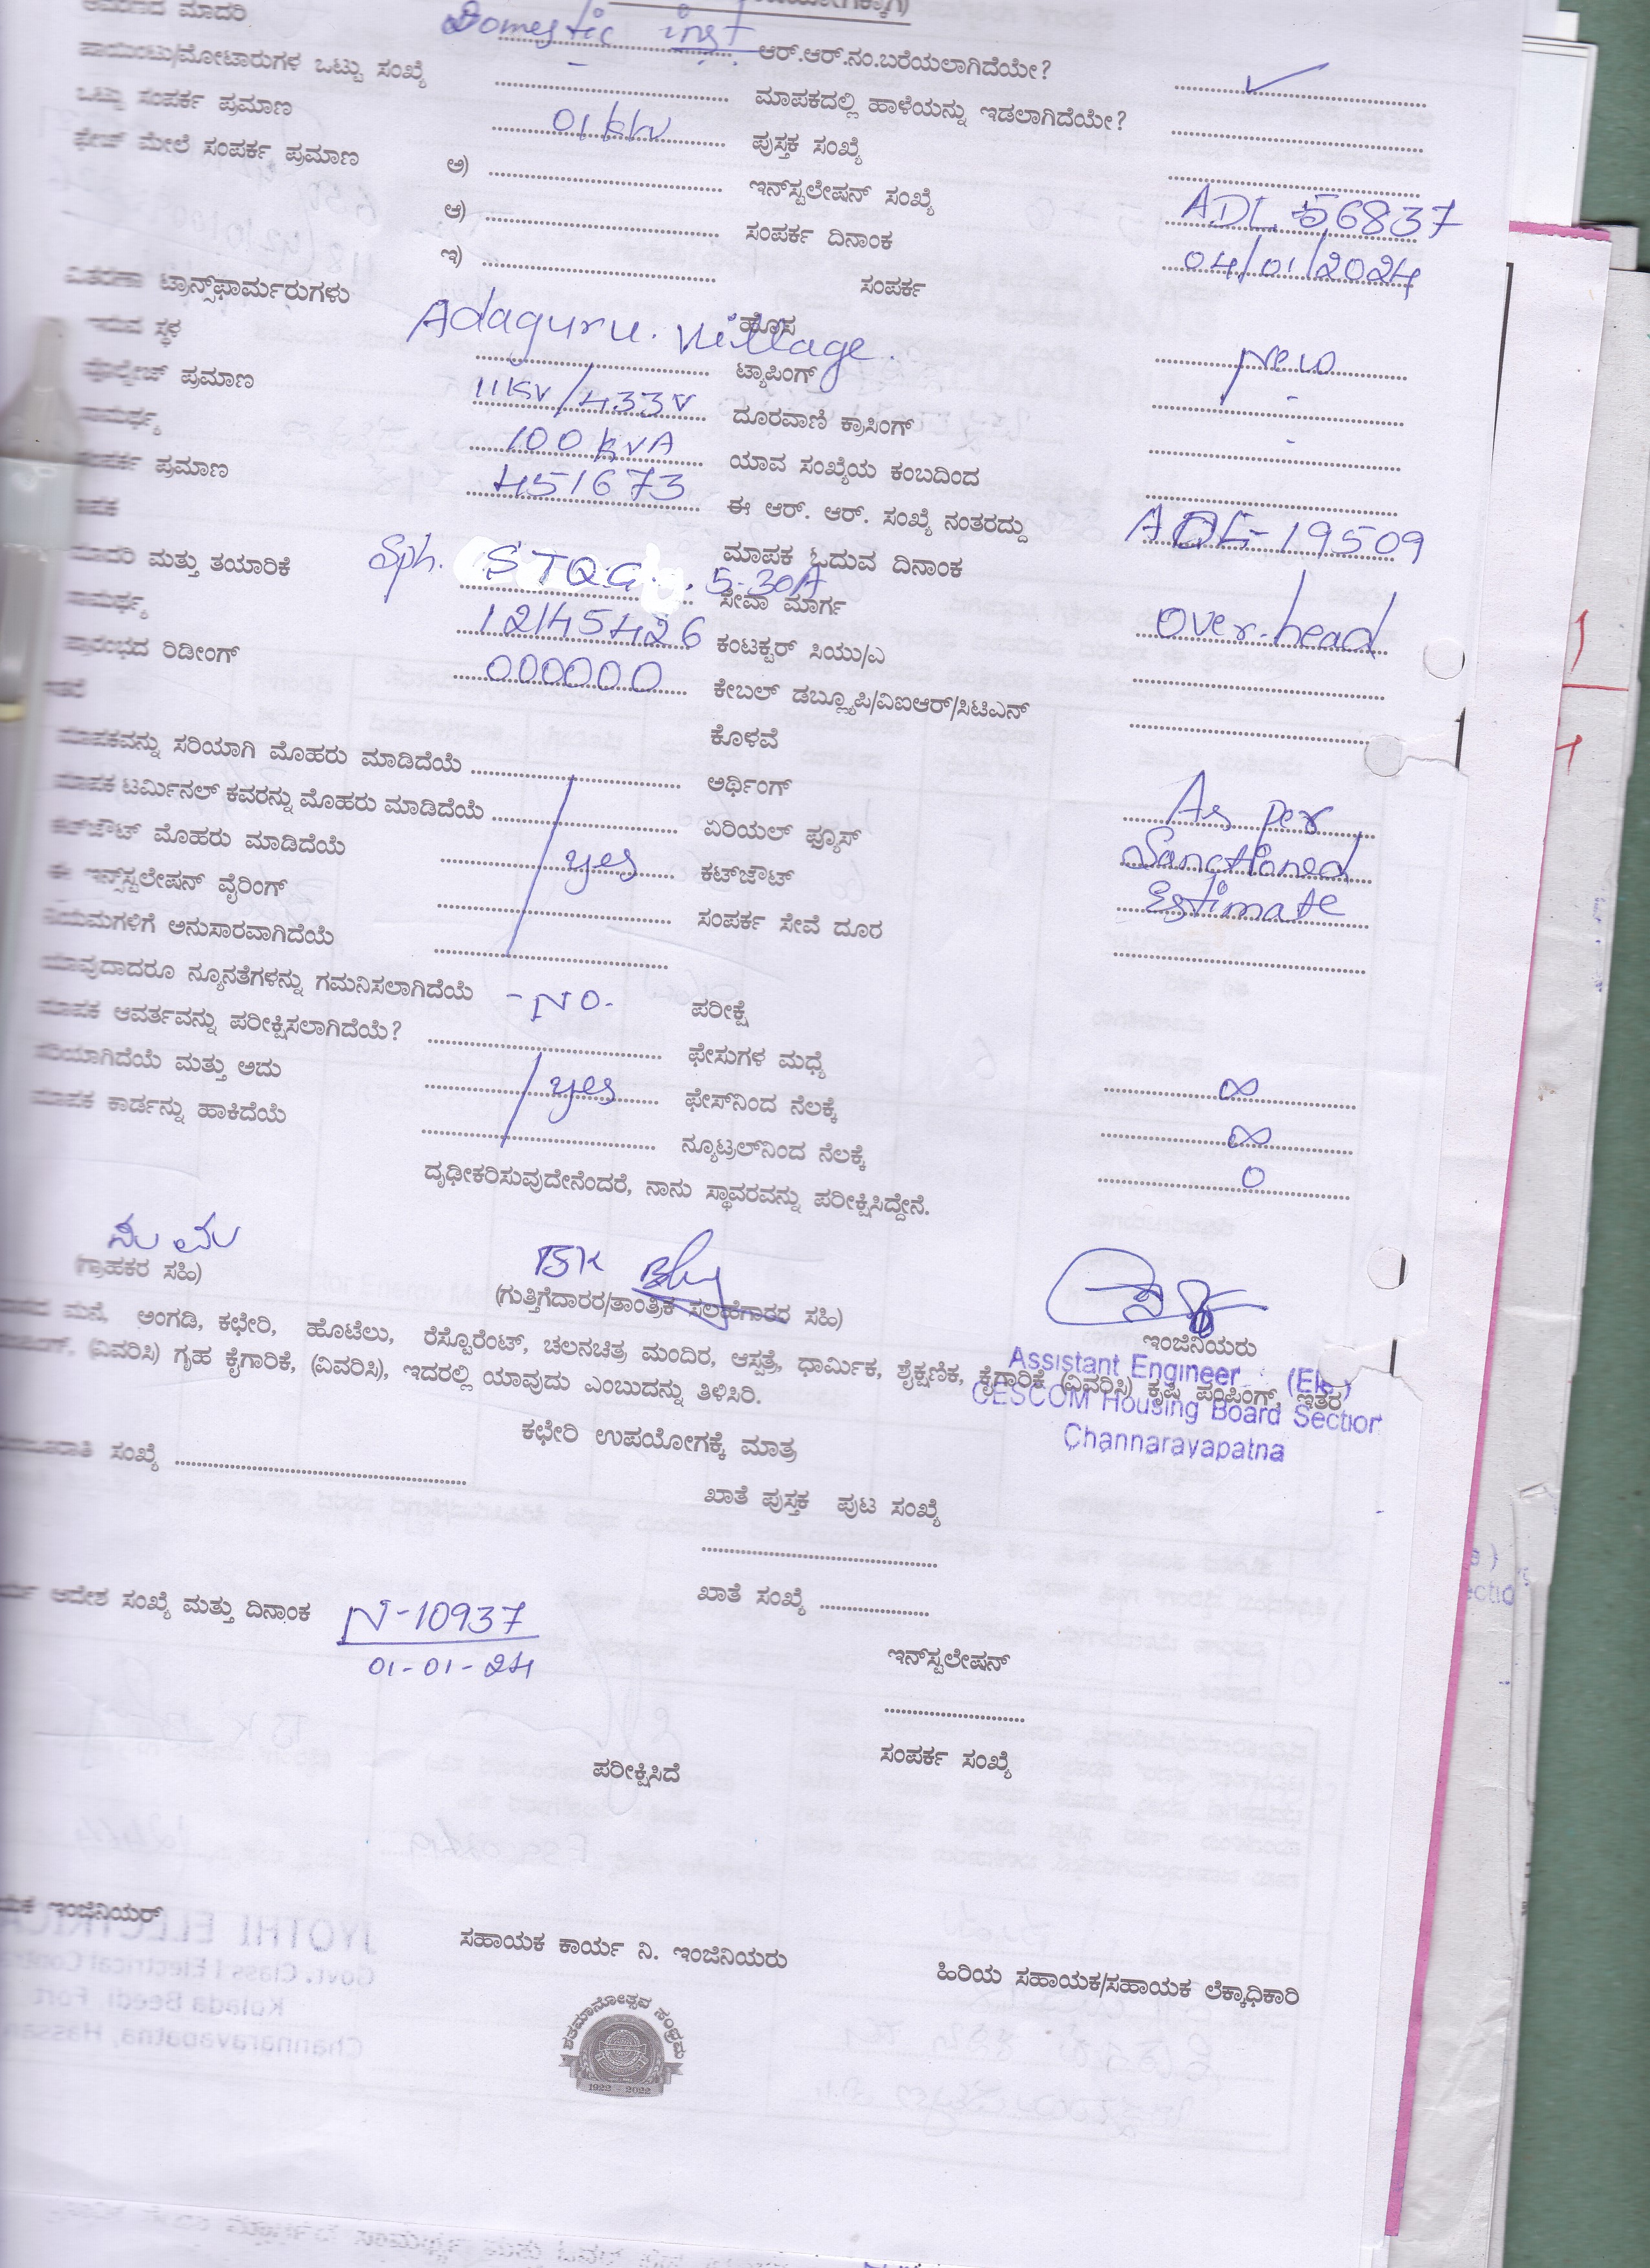 ಮಾದರಿ Domestic inst ಆರ್.ಆರ್.ನಂ.ಬರೆಯಲಾಗಿದೆಯೇ? ✓
ಪಾಯಿಂಟು/ಮೋಟಾರುಗಳ ಒಟ್ಟು ಸಂಖ್ಯೆ - ಮಾಪಕದಲ್ಲಿ ಹಾಳೆಯನ್ನು ಇಡಲಾಗಿದೆಯೇ?
ಒಟ್ಟು ಸಂಪರ್ಕ ಪ್ರಮಾಣ 01 kw ಪುಸ್ತಕ ಸಂಖ್ಯೆ
ಫೇಜ್ ಮೇಲೆ ಸಂಪರ್ಕ ಪ್ರಮಾಣ ಅ) ಇನ್‌ಸ್ಟಲೇಷನ್ ಸಂಖ್ಯೆ ADL 56837
ಆ) ಸಂಪರ್ಕ ದಿನಾಂಕ 04/01/2024
ಇ) ಸಂಪರ್ಕ
ವಿತರಣಾ ಟ್ರಾನ್ಸ್‌ಫಾರ್ಮರುಗಳು
ಇರುವ ಸ್ಥಳ Adaguru. village. ಹೊಸ new
ಟ್ಯಾಪಿಂಗ್ -
ವೋಲ್ಟೇಜ್ ಪ್ರಮಾಣ 11KV/433V ದೂರವಾಣಿ ಕ್ರಾಸಿಂಗ್ -
ಸಾಮರ್ಥ್ಯ 100 kVA ಯಾವ ಸಂಖ್ಯೆಯ ಕಂಬದಿಂದ
ಸಂಪರ್ಕ ಪ್ರಮಾಣ 451673 ಈ ಆರ್. ಆರ್. ಸಂಖ್ಯೆ ನಂತರದ್ದು ADL-19509
ಮಾಪಕ ಮಾಪಕ ಓದುವ ದಿನಾಂಕ
ಮಾದರಿ ಮತ್ತು ತಯಾರಿಕೆ Sph. STQC. 5-30A ಸೇವಾ ಮಾರ್ಗ Over head
ಸಾಮರ್ಥ್ಯ 12145426 ಕಂಟಕ್ಟರ್ ಸಿಯು/ಎ
ಪ್ರಾರಂಭದ ರಿಡೀಂಗ್ 000000 ಕೇಬಲ್ ಡಬ್ಲ್ಯೂಪಿ/ವಿಐಆರ್/ಸಿಟಿಎನ್
ಇತರೆ ಕೊಳವೆ
ಮಾಪಕವನ್ನು ಸರಿಯಾಗಿ ಮೊಹರು ಮಾಡಿದೆಯೆ ಅರ್ಥಿಂಗ್ As per
ಮಾಪಕ ಟರ್ಮಿನಲ್ ಕವರನ್ನು ಮೊಹರು ಮಾಡಿದೆಯೆ ಏರಿಯಲ್ ಫ್ಯೂಸ್ Sanctioned
ಕಟ್‌ಔಟ್ ಮೊಹರು ಮಾಡಿದೆಯೆ yes ಕಟ್‌ಔಟ್ Estimate
ಈ ಇನ್ಸ್‌ಸ್ಟಲೇಷನ್ ವೈರಿಂಗ್ ಸಂಪರ್ಕ ಸೇವೆ ದೂರ
ನಿಯಮಗಳಿಗೆ ಅನುಸಾರವಾಗಿದೆಯೆ
ಯಾವುದಾದರೂ ನ್ಯೂನತೆಗಳನ್ನು ಗಮನಿಸಲಾಗಿದೆಯೆ - NO. ಪರೀಕ್ಷೆ
ಮಾಪಕ ಆವರ್ತವನ್ನು ಪರೀಕ್ಷಿಸಲಾಗಿದೆಯೆ? ಫೇಸುಗಳ ಮಧ್ಯೆ ∞
ಸರಿಯಾಗಿದೆಯೆ ಮತ್ತು ಅದು yes ಫೇಸ್‌ನಿಂದ ನೆಲಕ್ಕೆ ∞
ಮಾಪಕ ಕಾರ್ಡನ್ನು ಹಾಕಿದೆಯೆ ನ್ಯೂಟ್ರಲ್‌ನಿಂದ ನೆಲಕ್ಕೆ 0
ದೃಢೀಕರಿಸುವುದೇನೆಂದರೆ, ನಾನು ಸ್ಥಾವರವನ್ನು ಪರೀಕ್ಷಿಸಿದ್ದೇನೆ.
(ಗ್ರಾಹಕರ ಸಹಿ) (ಗುತ್ತಿಗೆದಾರರ/ತಾಂತ್ರಿಕ ಸಲಹೆಗಾರರ ಸಹಿ) ಇಂಜಿನಿಯರು
Assistant Engineer (Ele)
CESCOM Housing Board Section
Channarayapatna
ಮನೆ, ಅಂಗಡಿ, ಕಛೇರಿ, ಹೊಟೆಲು, ರೆಸ್ಟೊರೆಂಟ್, ಚಲನಚಿತ್ರ ಮಂದಿರ, ಆಸ್ಪತ್ರೆ, ಧಾರ್ಮಿಕ, ಶೈಕ್ಷಣಿಕ, ಕೈಗಾರಿಕೆ (ವಿವರಿಸಿ) ಕೃಷಿ ಪಂಪಿಂಗ್, ಇತರ
(ವಿವರಿಸಿ) ಗೃಹ ಕೈಗಾರಿಕೆ, (ವಿವರಿಸಿ), ಇದರಲ್ಲಿ ಯಾವುದು ಎಂಬುದನ್ನು ತಿಳಿಸಿರಿ.
ಕಛೇರಿ ಉಪಯೋಗಕ್ಕೆ ಮಾತ್ರ
ಸಂಖ್ಯೆ
ಖಾತೆ ಪುಸ್ತಕ ಪುಟ ಸಂಖ್ಯೆ
ಆದೇಶ ಸಂಖ್ಯೆ ಮತ್ತು ದಿನಾಂಕ N-10937 ಖಾತೆ ಸಂಖ್ಯೆ
01-01-24
ಇನ್‌ಸ್ಟಲೇಷನ್
ಪರೀಕ್ಷಿಸಿದೆ ಸಂಪರ್ಕ ಸಂಖ್ಯೆ
ಇಂಜಿನಿಯರ್ ಸಹಾಯಕ ಕಾರ್ಯ ನಿ. ಇಂಜಿನಿಯರು ಹಿರಿಯ ಸಹಾಯಕ/ಸಹಾಯಕ ಲೆಕ್ಕಾಧಿಕಾರಿ
ಶತಮಾನೋತ್ಸವ ಸಂಭ್ರಮ
1922 - 2022